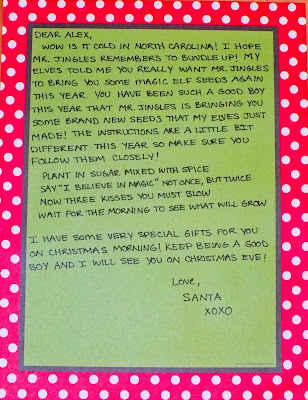 DEAR ALEX,
WOW IS IT COLD IN NORTH CAROLINA! I HOPE
MR. JINGLES REMEMBERS TO BUNDLE UP! MY
ELVES TOLD ME YOU REALLY WANT MR. JINGLES
TO BRING YOU SOME MAGIC ELF SEEDS AGAIN
THIS YEAR. YOU HAVE BEEN SUCH A GOOD BOY
THIS YEAR THAT MR. JINGLES IS BRINGING YOU
SOME BRAND NEW SEEDS THAT MY ELVES JUST
MADE! THE INSTRUCTIONS ARE A LITTLE BIT
DIFFERENT THIS YEAR SO MAKE SURE YOU
FOLLOW THEM CLOSELY!
PLANT IN SUGAR MIXED WITH SPICE
SAY "I BELIEVE IN MAGIC" NOT ONCE, BUT TWICE
NOW THREE KISSES YOU MUST BLOW
WAIT FOR THE MORNING TO SEE WHAT WILL GROW
I HAVE SOME VERY SPECIAL GIFTS FOR YOU
ON CHRISTMAS MORNING! KEEP BEING A GOOD
BOY AND I WILL SEE YOU ON CHRISTMAS EVE!
LOVE,
SANTA
XOXO